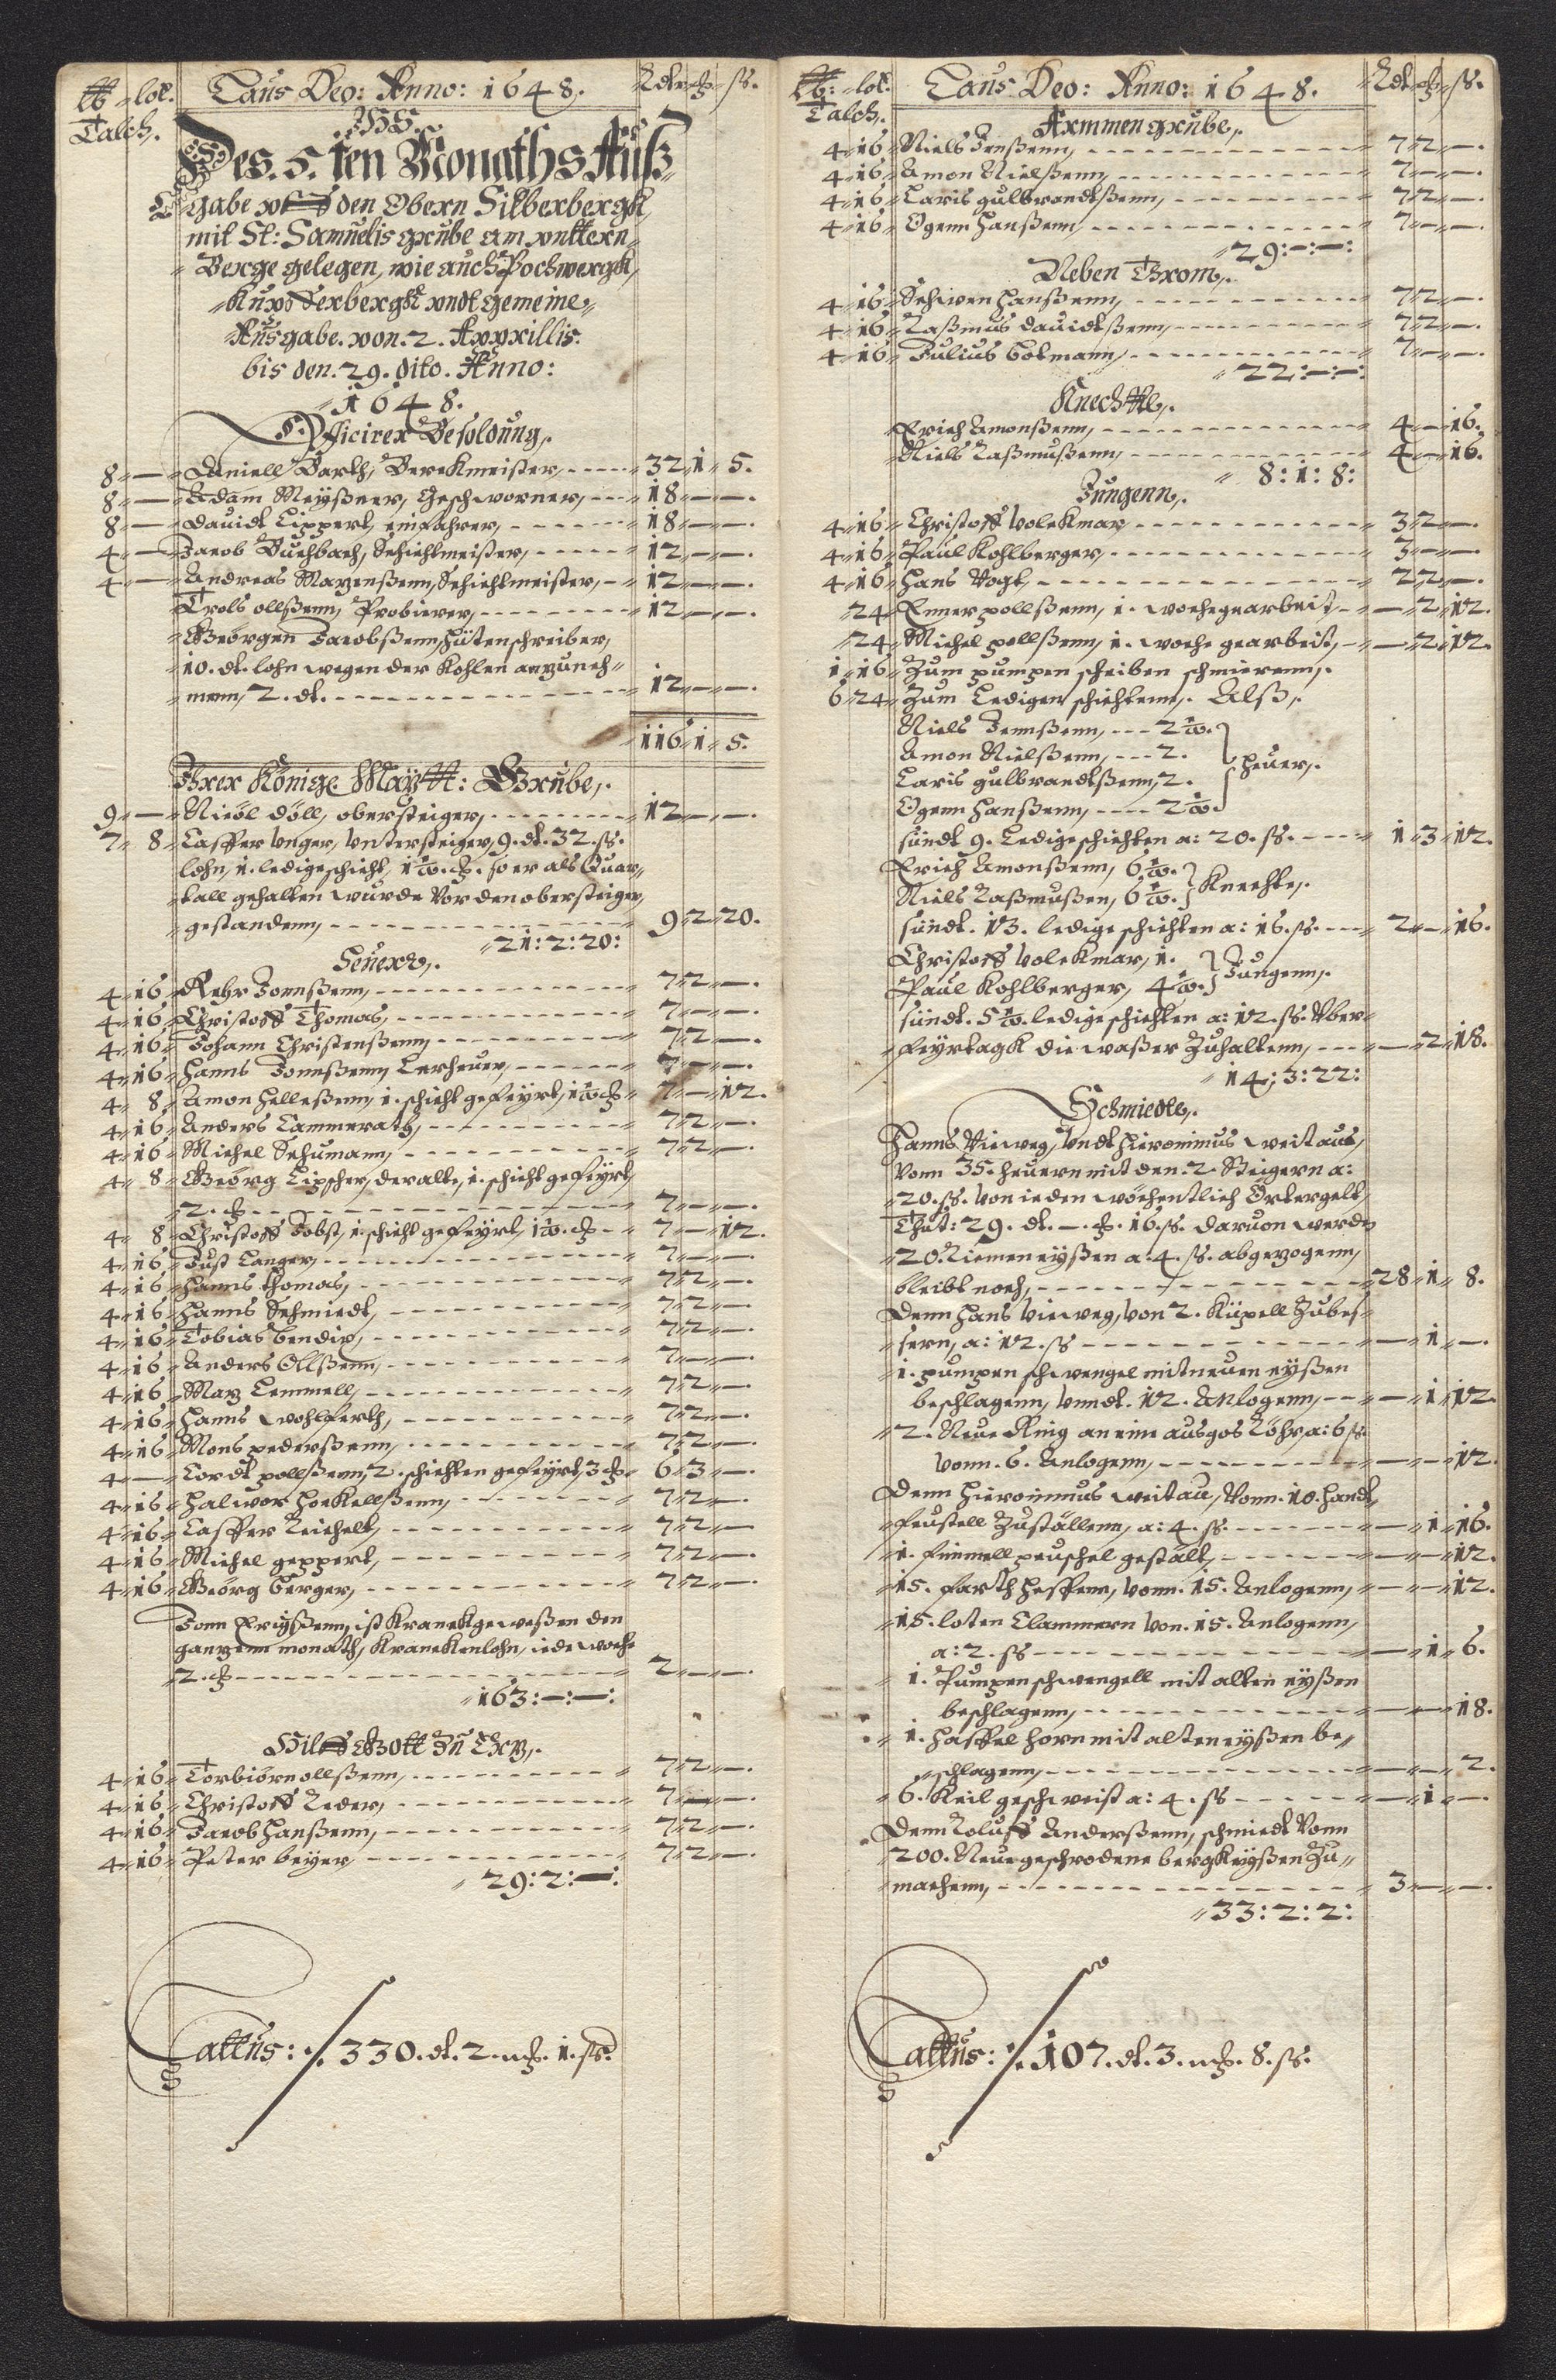 lb lot. Laus Deo: Anno: 1648. Rdt ß.
Talch. JHS.
Des. 5. ten Monaths Auß
gabe den Obern Silberbergk,
mit St: Samuelis grube am vnttern
Berge gelegen, wie auch Pochwergk,
vndt gemeine
Ausgabe. von. 2. Apprillis.
bis den. 29. dito. Anno:
1648.
Officirer Besoldung.
8 — Daniell Barth, Berckmeister, 32 1 5.
8 — Adam Meyßner, Geschworner, 18 — —.
8 — Dauidt Lippert, einfahrer, 18 — —.
4 — Jacob Buchbach, Schichtmeister, 12 — —.
4 — Andreas Mayenßenn, Schichtmeister, 12 — —.
Trols ollßenn, Probierer, 12 — —.
Geörgen Jacobßenn, hütenschreiber,
10. dt. lohn wegen der Kohlen anzuneh
menn, 2. dt. 12 — —.
116 1 5.
Ihrer Königl. Maytt: Grube.
9 — Nicöl döll, obersteiger, 12 — —.
7 8 Casper Vnger, Vntersteiger, 9. dt. 32. ß.
lohn, 1. ledige schicht, 1½. so er als Quar
tall gehalten wurde Vor den obersteiger,
gestandenn, 9 2 20.
21: 2: 20:
Heuer.
4 16 Rehr Jonßenn, 7 2 —.
4 16 Christoff Thomas, 7 — —.
4 16 Johann Christenßenn, 7 2 —.
4 16 Hanns Jonnßenn, Lerheuer, 7 — —.
4 8 Amon Helleßenn, 1. schicht gefeyrt, 1½ 7 — 12.
4 16 Anders Cammerath, 7 2 —.
4 16 Michel Schumann, 7 2 —.
4 8 Geörg Lipscher, der alte, 1. schicht gefeyrt,
2. 7 — —.
4 8 Christoff Jobst, 1. schicht gefeyrt, 1½. 7 — 12.
4 16 Just Langer, 7 — —.
4 16 Hanns thomas, 7 2 —.
4 16 Hanns Schmiedt, 7 2 —.
4 16 Tobias bendix, 7 2 —.
4 16 Anders Ollßenn, 7 — —.
4 16 Max Lemmell, 7 2 —.
4 16 Hanns wohlferth, 7 2 —.
4 16 Mons pederßenn, 7 2 —.
4 — Cordt pollßenn, 2. schichten gefeyrt, 3 6 3 —.
4 16 Halwor Hockellßenn, 7 2 —.
4 16 Casper Reichelt, 7 2 —.
4 16 Michel geppert, 7 2 —.
4 16 Geörg berger, 7 2 —.
Jonn Erigßenn, ist Kranck geweßen den
ganzenn monath, Kranckenlohn, iede woche
2. 2 — —.
163: —: —:
Hilff Gott Zu Erz.
4 16 Torbiörn ollßenn, 7 2 —.
4 16 Christoff Reder, 7 — —.
4 16 Jacob Hanßenn, 7 2 —.
4 16 Peter beyer, 7 2 —.
29: 2: —:
Lattus: 330. dt. 2. 1. ß.
lb: lot. Laus Deo: Anno: 1648. Rdt ß.
Talch. Armmen grube.
4 16 Niels Jenßenn, 7 2 —.
4 16 Amon Nielßenn, 7 — —.
4 16 Laris gulbrandtßenn, 7 2 —.
4 16 Ogenn Hanßenn, 7 — —.
29: —: —:
Neben Trom.
4 16 Schwen Hanßenn, 7 2 —.
4 16 Raßmus dauidtßenn, 7 2 —.
4 16 Julius Colmann, 7 — —.
22: —: —:
Knechtte.
Erich Amonßenn, 4 — 16.
Niels Raßmußenn, 4 — 16.
8: 1: 8:
Jungenn.
4 16 Christoff Volckmar 3 2 —.
4 16 Paul Kohlberger, 3 — —.
4 16 Hans Vogt, 2 2 —.
24 Enner pollßenn, 1. woche gearbeit, — 2 12.
24 Michel pollßenn, 1. woche gearbeit, — 2 12.
1 16 Zum pumpen scheiben schmierenn.
6 24 Zum Ledigen schichtenn. Alß.
Niels Jennßenn, 2½.
Amon Nielßenn, 2.
Laris gulbrandtßenn, 2. heuer.
Ogenn Hanßenn, 2½.
sündt 9. Ledige schichten a: 20. ß. 1 3 12.
Erich Amonßenn, 6½.
Niels Raßmußen, 6½. Knechte.
sündt. 13. ledige schichten a: 16. ß. 2 — 16.
Christoff Volckmar, 1.
Paul Kohlberger, 4½. Jungenn.
sündt. 5½. ledige schichten a: 12. ß. Vber
feyrtagk die waßer Zuhaltenn, — 2 18.
14: 3: 22:
Schmiedte.
Hanns Vieweg, Vndt Hieronimus weitaus,
Vonn 35. heuern mit den. 2. Steigern a:
20. ß. Von ieden wöchentlich Örtergelt,
Thut: 29. dt. —. 16. ß. daruon werden
20. Riemen eyßen a: 4. ß. abgezogenn,
bleibt noch, 28 1 8.
Denn Hans Vieweg, von 2. Küpell Zubes
sern, a: 12. ß — 1 —.
1. pumpen schwengel mit neuen eyßen
beschlagenn, Vnndt. 12. Anlogenn, — 1 12.
2. Neue Ring an eine ausgos Röhr, a: 6 ß
Vonn. 6. Anlogenn, — — 12.
Denn Hieronimus weitau, Vonn. 10. handt
feustell Zuställenn, a: 4. ß. — 1 16.
1. fimmell peuschel gestält, — — 12.
15. farth haspenn, Vonn. 15. Anlogenn, — — 12.
15. loten Clammern Von. 15. Anlogenn,
a: 2. ß — 1 6.
1. Pumpen schwengell mit alten eyßen
beschlagenn, — — 18.
1. Haspel horn mit alten eyßen be
schlagenn, — — 2.
6. Keil geschweist a: 4. ß — 1 —.
Denn Roluff Anderßenn, schmiedt Vonn
200. Neue geschrodene bergkeyßen Zu
machenn, 3 — —.
33: 2: 2:
Lattus: 107. dt. 3. 8. ß.